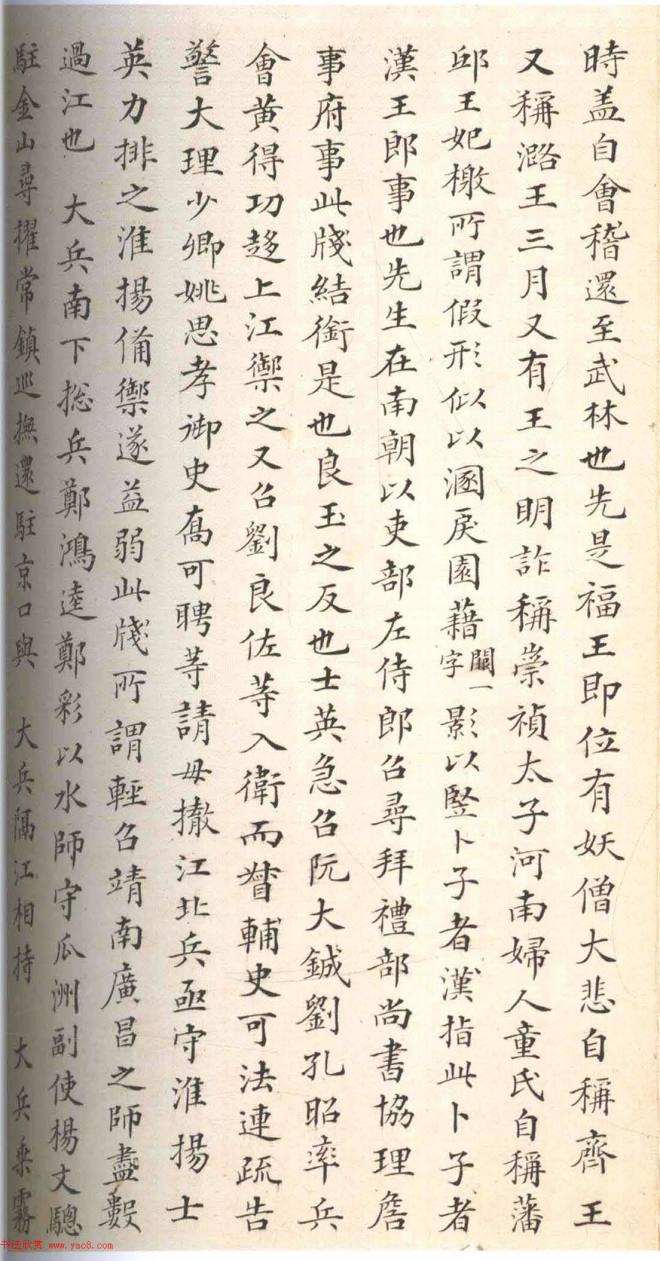 時盖自會稽還至武林也先是福王即位有妖僧大悲自稱齊王
又稱潞王三月又有王之明詐稱崇禎太子河南婦人童氏自稱藩
邸王妃檄所謂假形似以溷戾園藉闕一字影以豎卜子者漢指此卜子者
漢王郎事也先生在南朝以吏部左侍郎召尋拜禮部尚書協理詹
事府事此牋結銜是也良玉之反也士英急召阮大鋮劉孔昭率兵
會黄得功趍上江禦之又召劉良佐等入衛而督輔史可法連疏告
警大理少卿姚思孝御史喬可聘等請毋撤江北兵亟守淮揚士
英力排之淮揚備禦遂益弱此牋所謂輕召靖南廣昌之師盡數
過江也 大兵南下捴兵鄭鴻逵鄭彩以水師守瓜洲副使楊文驄
駐金山尋擢常鎮巡撫還駐京口與 大兵隔江相持 大兵乘霧
书法欣赏 www.yac8.com